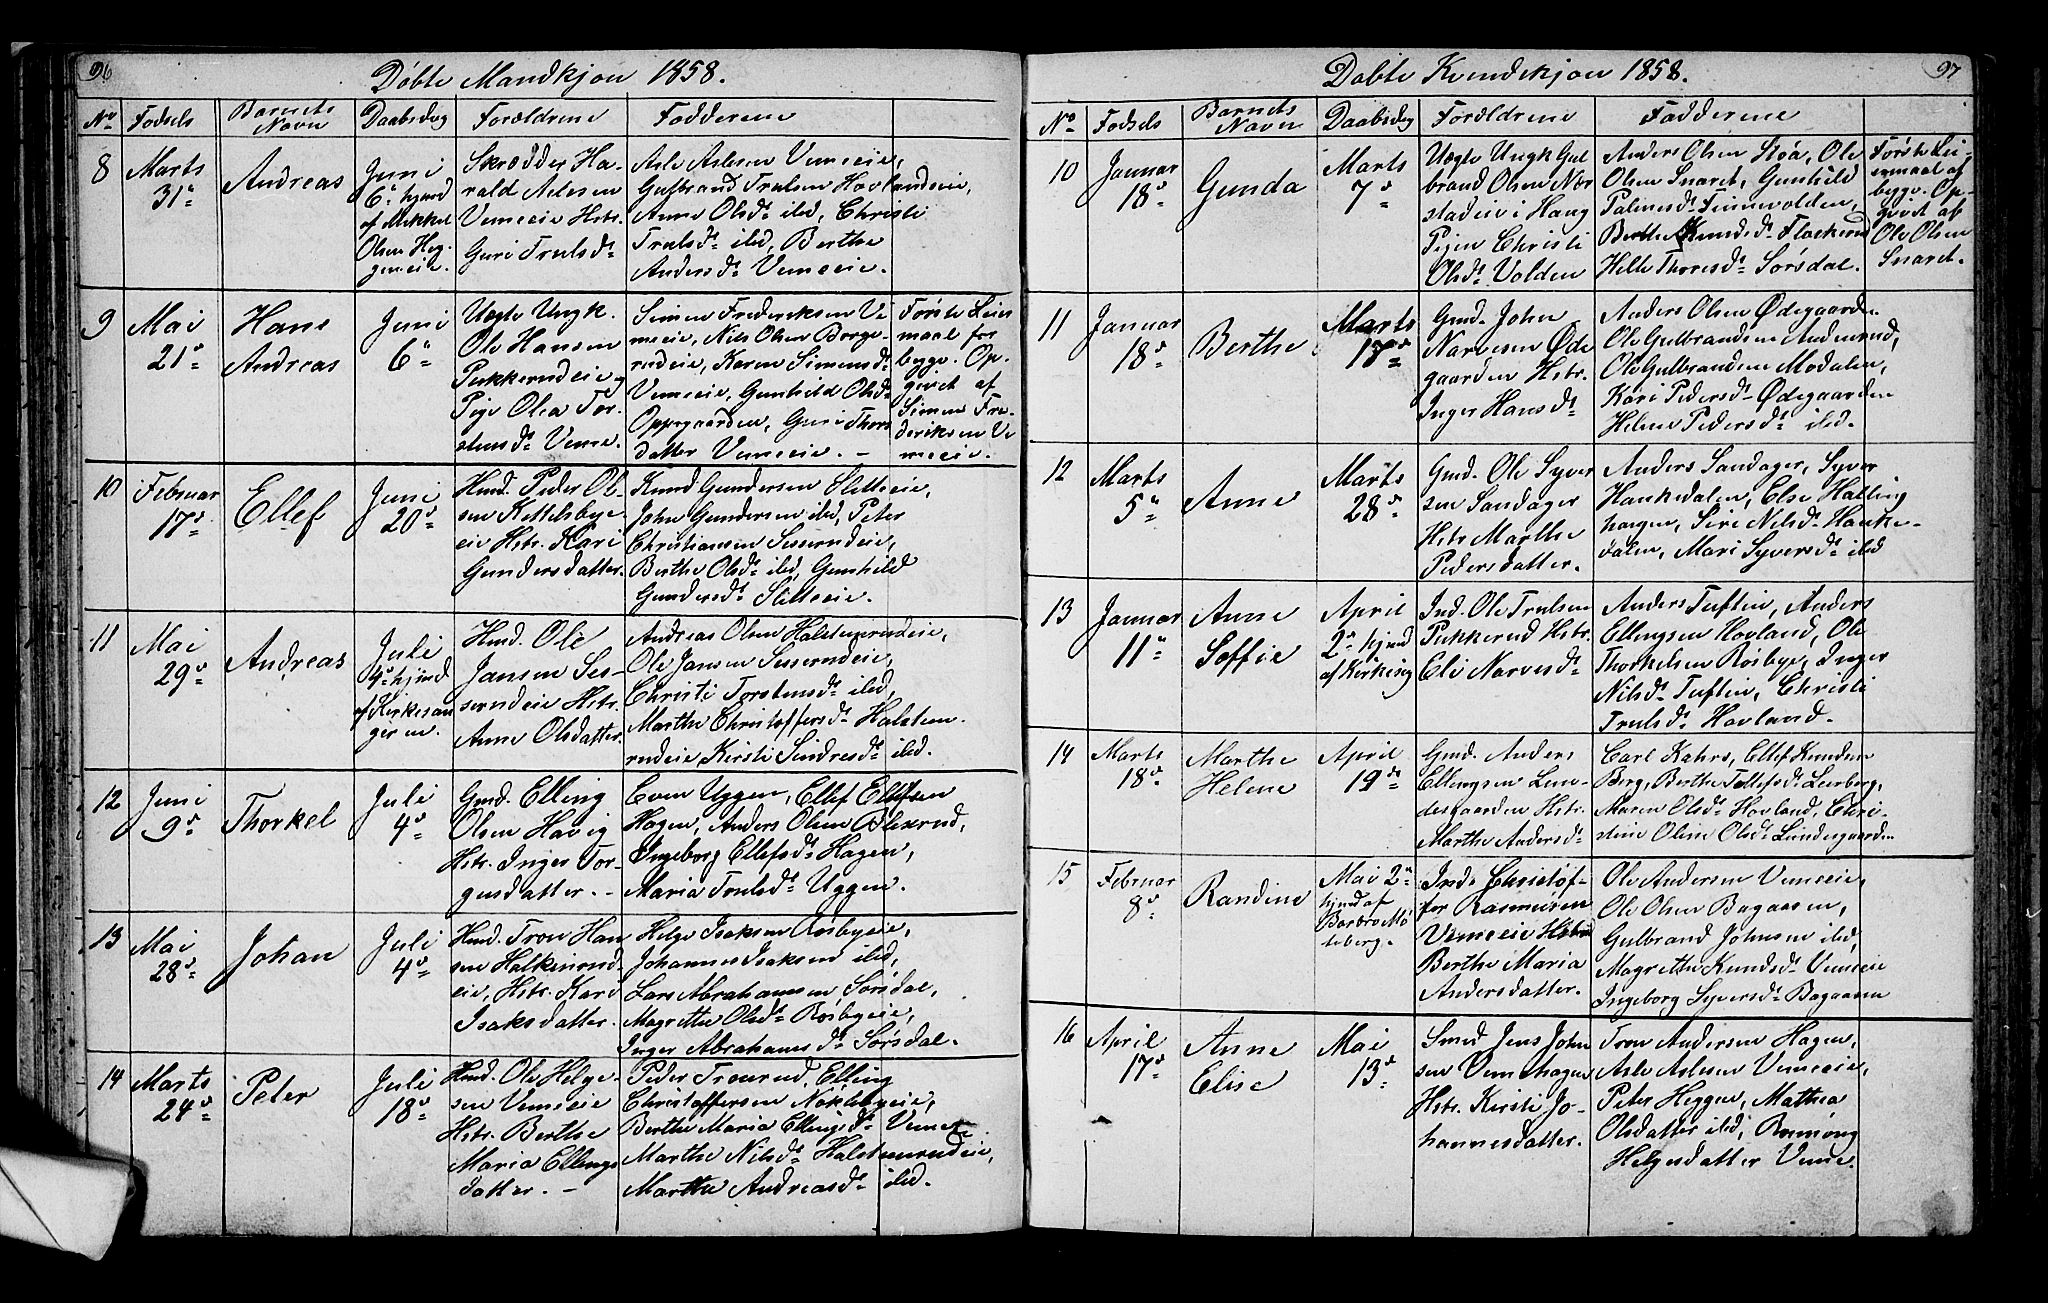 96
Døbte Mandkjøn 1858.
No Fødsels Barnets Navn Daabsdag Forældrene Fadderene
8
Marts
31te
Andreas
Juni
6te hjemd
af Mikkel
Olsen Heg-
geneie.
Skrædder Ha-
rald Aslesen
Vemeeie Hstr.
Guri Trulsdt
Asle Aslesen Vemeeie,
Gulbrand Trulsen Hovlandseie,
Anne Olsdt ibid, Christi
Trulsdt ibid, Berthe
Andersdt Vemeeie.
9
Mai
21de
Hans
Andreas
Juni
6te
Uægte Ungk.
Ole Hansen
Pukkerudeie og
Pige Olea Tor-
stensdt Veme.
Simen Frederiksen Ve
meeie, Nils Olsen Borge-
rudeie, Karen Simensdt
Vemeeie, Gunhild Olsdt
Oppegaarden, Guri Thors
datter Vemeeie. –
Første Leier
maal for
begge. Op-
givet af
Simen Fre-
deriksen Ve
meeie.
10
Februar
17de
Ellef
Juni
20de
Hmd. Peder Ol-
sen Kettelsbye-
eie Hstr. Kari
Gundersdatter.
Knud Gundersen Sletteeie,
John Gundersen ibid, Peter
Christiansen Sesserudeie,
Berthe Olsdt ibid, Gunhild
Gundersdt Sletteeie.
11
Mai
29de
Andreas
Juli
4de hjemd
af Kirkesan
geren.
Hmd. Ole
Jansen Ses-
serudeie Hstr.
Anne Olsdatter.
Andreas Olsen Halstenrudeie,
Ole Jansen Sesserudeie,
Christi Torstensdt ibid,
Marthe Christoffersdt Halsten-
rudeie Kirsti Sindresdt ibid.
12
Juni
9de
Thorkel
Juli
4de
Gmd. Elling
Olsen Havig
Hstr. Inger Tor-
gusdatter. –
Even Uggen, Ellef Ellefsen
Hagen, Anders Olsen Olexrud,
Ingeborg Ellefsdt Hagen,
Maria Trulsdt Uggen.
13
Mai
28de
Johan
Juli
4de
Hmd. Tron Han
sen Halkinrud-
eie, Hstr. Kari
Isaksdatter.
Helge Isaksen Røsbyeie,
Johannes Isaksen ibid,
Lars Abrahamsen Sørsdal,
Magrethe Olsdt Røsbyeie,
Inger Abrahamsdt Sørsdal.
14
Marts
24de
Peter
Juli
18de
Hmd. Ole Helge-
sen Vemeeie
Hstr. Berthe
Maria Ellings
datter. –
Peder Tronrud, Elling
Christoffersen Naklebyeie,
Berthe Maria Ellingsdt Veme
Marthe Nilsdt Halstenrudeie,
Marthe Andreasdt ibid.
97
Døbte Kvindekjøn 1858.
No Fødsels Barnets Navn Daabsdag Forældrene Fadderene
10
Januar
18de
Gunda
Marts
7de
Uægte Ungk Gul
brand Olsen Nær
stadeie i Haug
Pigen Christi
Olsdt Volden
Anders Olsen Støa, Ole
Olsen Snaret, Gunhild
Palmesdt Finnevolden,
Berthe Knudsdt Flaskerud
Helle Thoresdt Sørsdal.
Første Lei-
ermaal af
begge. Op-
givet af
Ole Olsen
Snaret.
11
Januar
18de
Berthe
Marts
17de
Gmd. John
Narvesen Øde
gaarden Hstr.
Inger Hansdt
Anders Olsen Ødegaarden
Ole Gulbrandsen Andenrud,
Ole Gulbrandsen Modalen,
Kari Pedersdt Ødegaarden
Helene Pedersdt ibid.
12
Marts
5te
Anne
Marts
28de
Gmd. Ole Syver
sen Sandager
Hstr Marthe
Pedersdatter.
Anders Sandager, Syver
Hankedalen, Else Halling
hagen, Siri Nilsdt Hanke-
dalen, Mari Syversdt ibid
13
Januar
11te
Anne
Soffie
April
2de hjemd
af Kirkesg
Ind. Ole Trulsen
Pukkerud Hstr.
Eli Narvesdt
Anders Tuftin, Anders
Ellingsen Hovland, Ole
Thorkelsen Røsbye, Inger
Nilsdt Tuftin, Christi
Trulsdt Hovland.
14
Marts
18de
Marthe
Helene
April
19de
Gmd. Anders
Ellingsen Lun-
desgaarden Hstr.
Marthe Andersdt
Carl Kahrs, Ellef Knudsen
Berg, Berthe Tollefsdt Leerberg,
Maren Olsdt Hovland, Chri-
stine Oline Olsdt Lundesgaarden
15
Februar
8de
Randine
Mai 2de
hjemd af
Barbro Mø
leberg.
Inds. Christof-
fer Rasmusen
Vemeeie Hstru
Berthe Maria
Andersdatter.
Ole Andersen Vemeeie,
Ole Olsen Bagaasen,
Gulbrand Johnsen ibid,
Magrethe Knudsdt Vemeeie
Ingeborg Syversdt Bagaasen
16
April
17de
Anne
Elise
Mai
13de
Smed Jens John
sen Vemehagen
Hstr. Kirsti Jo-
hannesdatter.
Tron Andersen Hagen,
Asle Aslesen Vemeeie,
Peter Heggen, Mathea
Olsdatter ibid, Rønnøug
Helgesdatter Veme.